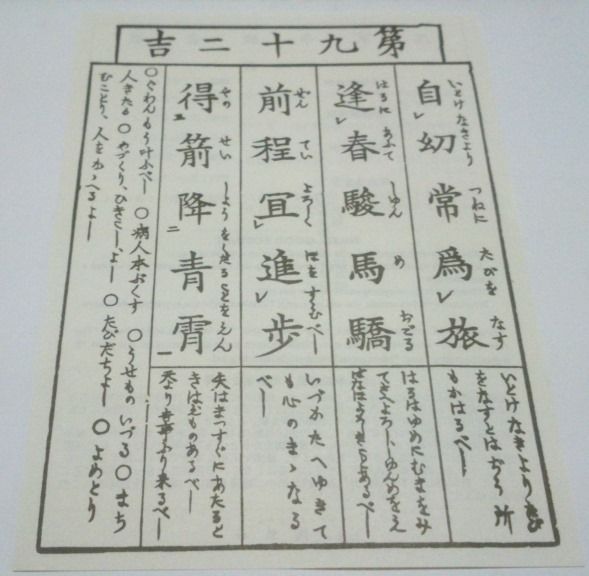 第九十二吉
いとけなきより つねに たびを なす
自レ幼常爲レ旅
いとけなきより たび
をなすとはぢう所
もかはるべし
はるに あふて しゆん め おごる
逢レ春駿馬驕
はるはゆめにむまをみ
ばなほよろ きことあるべし
ぜん てい よろしく ほをすむべし
前程宜レ進レ歩
いづかたへゆきて
も心のまゝなる
べし
やの せい
得三箭降二青霄一
矢はまつすぐにあたると
きは ものあるべし
天より吉事ふり来るべし
○ぐわんもう叶ふべし ○病人本ぶくす ○うせものいづる○まち
人きたる○やづくり、ひきこし、よし ○たびだちよし ○よめとり
むことり、人をかゝへるよし